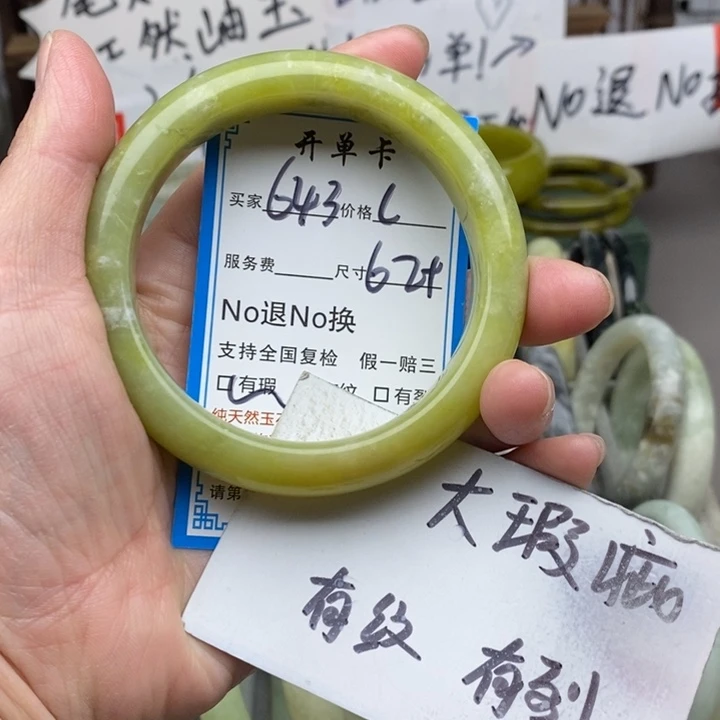 天然岫玉
单!→
No退 No换
开单卡
买家 643 价格 L
服务费 尺寸 62+
No退No换
支持全国复检 假一赔三
口有瑕 纹 口有裂
纯天然玉石
请第
大瑕疵
有纹 有裂